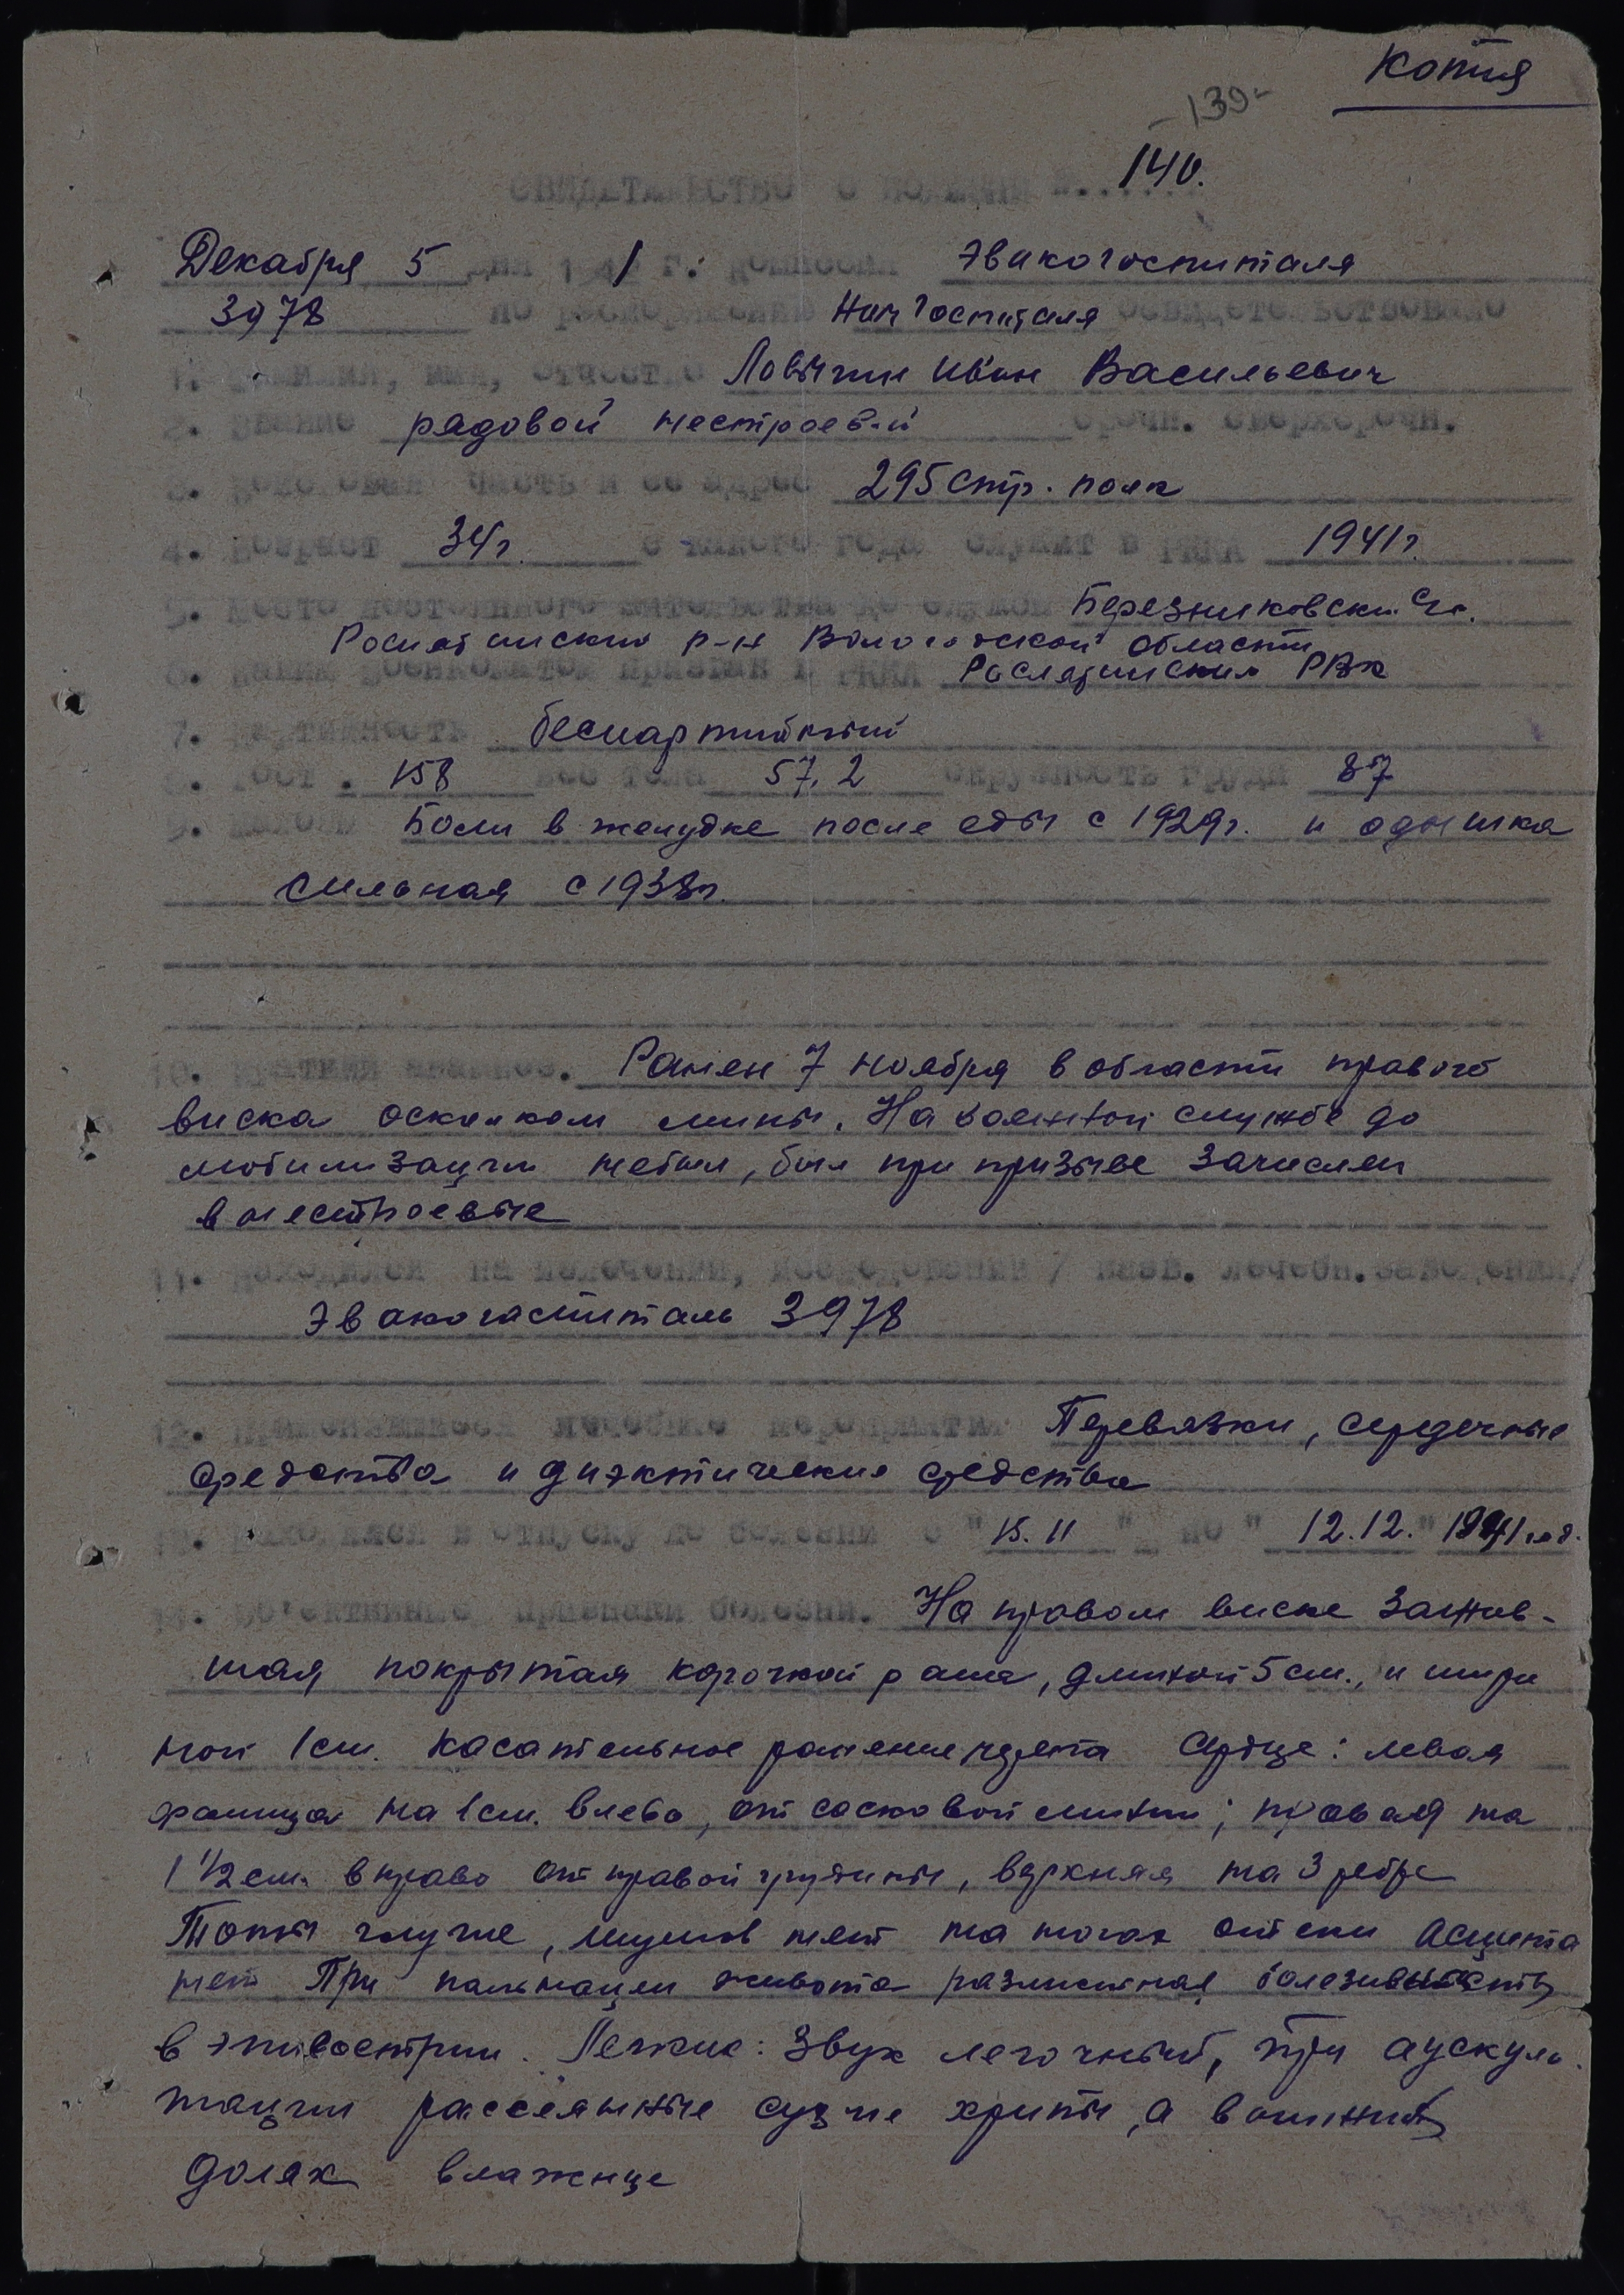 Копия
-139-
140.
СВИДЕТЕЛЬСТВО О БОЛЕЗНИ №......
Декабря 5 дня 194 1 г. Комиссия Эвакогоспиталя
3978 по распоряжению НачГоспиталя освидетельствовано
1. Фамилия, имя, отчество Ловыгин Иван Васильевич
2. Звание рядовой нестроевой срочн. сверхсрочн.
3. Войсковая часть и ее адрес 295 стр. полк
4. Возраст 34г. с какого года служит в РККА 1941г.
5. Место постоянного жительства до службы Березниковски
Рослятинский р-н Вологодской области
6. Каким военкоматом призван в РККА Рослятинским РВК
7. Партийность беспартийный
8. Рост . 158 вес тела 57,2 окружность груди 87
9. Жалобы Боли в желудке после еды с 1929г. и одышка
сильная с 1938г.
10. Краткий анамнез. Ранен 7 ноября в области правого
виска осколком мины. На военной службе до
мобилизации небыл, был при призыве зачислен
в нестроевые
11. Находился на излечении, исследовании / назв. лечебн.заведения/
Эвакогоспиталь 3978
12. Применявшиеся лечебные мероприятия Перевязки, сердечные
средства и диэктические средства
13. Находился в отпуску по болезни с "15.11" по "12.12." 1941 год.
14. Об'ективные признаки болезни. На правом виске зажив-
шая покрытая корочкой рана, длиной 5 см., и шири
ной 1 см. касательное ранение черепа Сердце: левая
граница на 1 см. влево, от сосковой линии; правая на
1 1/2 см. вправо от правой грудины, верхняя на 3 ребре
Тоны глухие, шумов нет на ногах отеки Асцита
нет При пальпации живота разлитая болезненность
в эпигастрии. Легкие: Звук легочный, при аускуль-
тации рассеянные сухие хрипы, а в нижних
долях влажные